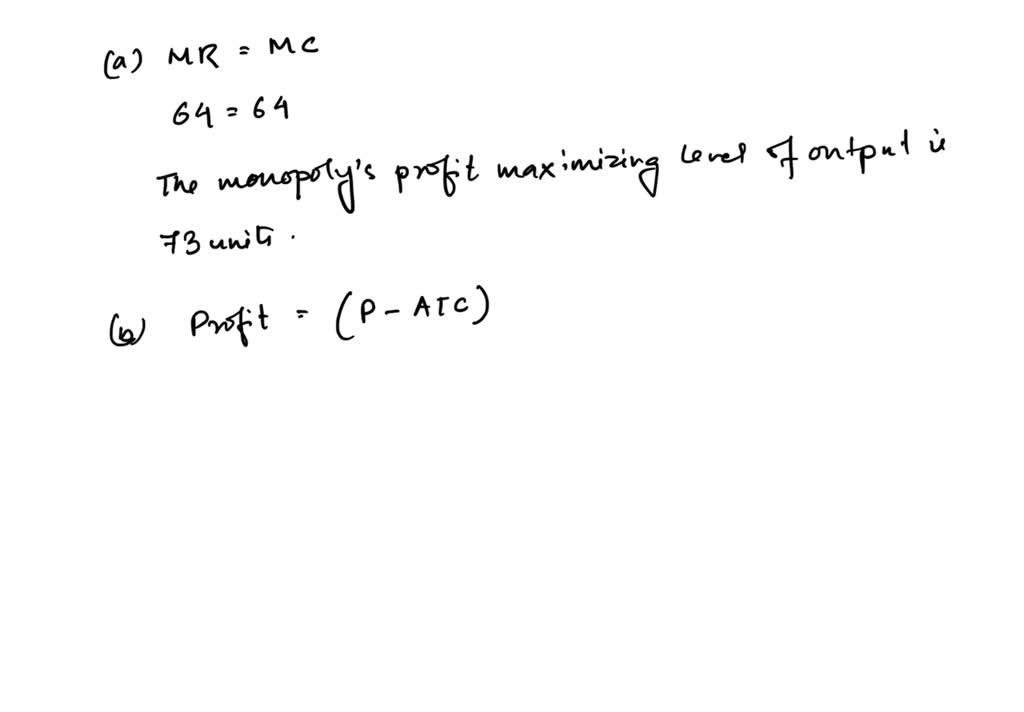 (a) MR = MC
64 = 64
The monopoly's profit maximizing level of output is
73 units.
(b) Profit = (P - ATC)